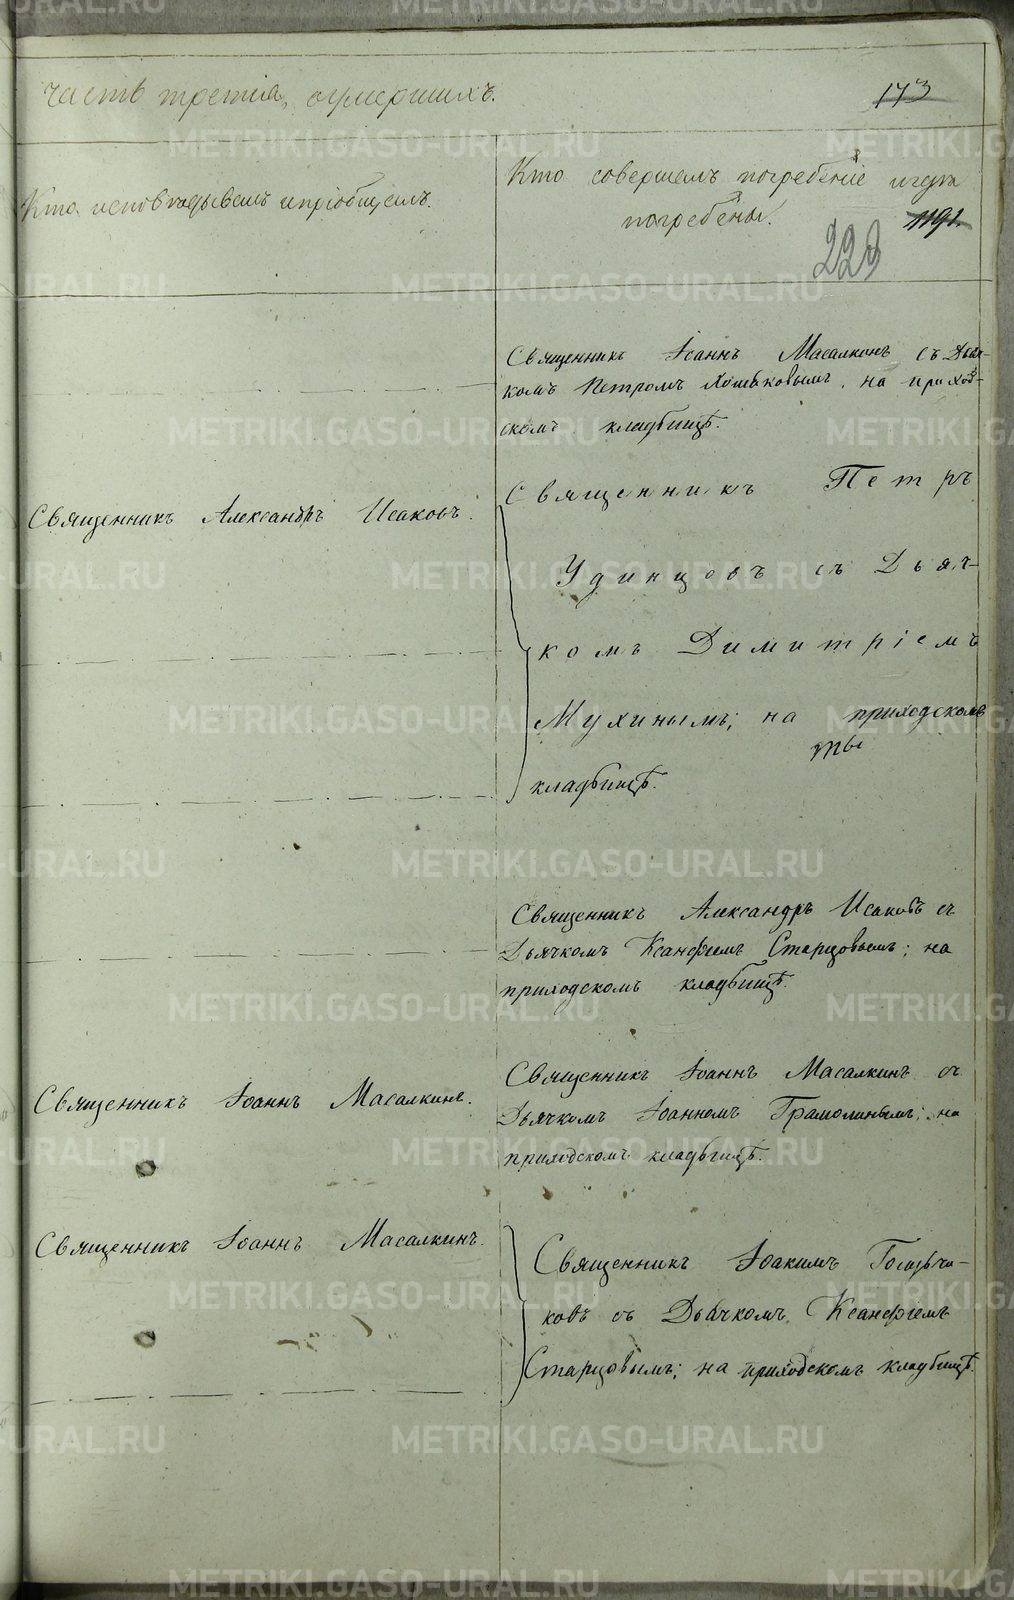 часть третія, умершихъ.
173
Кто исповѣдывалъ и пріобщалъ.
Кто совершалъ погребеніе и гдѣ
погребены.
1191.
229
Священникъ Іоаннъ Масалкинъ съ Дьяч-
комъ Петромъ Хомяковымъ, на приход-
скомъ кладбищѣ.
Священникъ Александръ Исаковъ.
Священникъ Петръ
Удинцовъ съ Дьяч-
комъ Димитріемъ
Мухинымъ; на приходскомъ
кладбищѣ.
Священникъ Александръ Исаковъ съ
Дьячкомъ Ксанфіемъ Старцовымъ; на
приходскомъ кладбищѣ.
Священникъ Іоаннъ Масалкинъ.
Священникъ Іоаннъ Масалкинъ съ
Дьячкомъ Іоанномъ Грамолинымъ; на
приходскомъ кладбищѣ.
Священникъ Іоаннъ Масалкинъ.
Священникъ Іоакимъ Голдычи-
ковъ съ Дьячкомъ Ксанфіемъ
Старцовымъ; на приходскомъ кладбищѣ.
METRIKI.GASO-URAL.RU